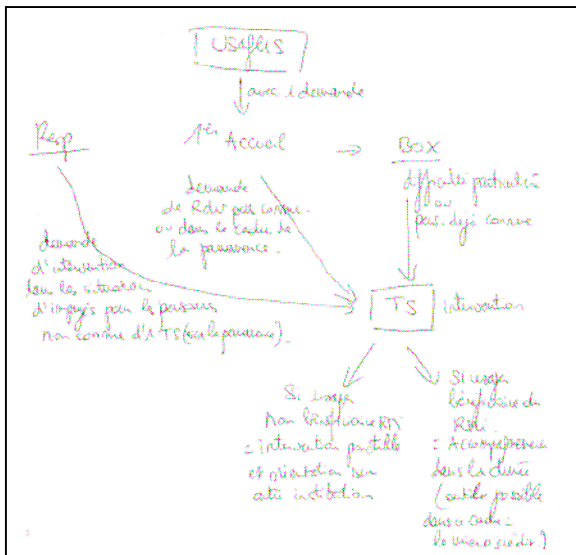 USAGERS
avec 1 demande
Resp
1er Accueil
BOX
difficulté particulière
ou
pers. déjà connue
demande
de RDV pers connue
ou dans le cadre de
la permanence.
demande
d'intervention
dans les situations
d'impayés pour les personnes
non connue d'1 TS (sur la permanence).
TS
intervention
Si usager
non bénéficiaire RMI
= intervention possible
et orientation sur
autre institution
Si usager
bénéficiaire du
RMI.
= Accompagnement
dans la durée
(outil possible
dans ce cadre =
le microcrédit.)